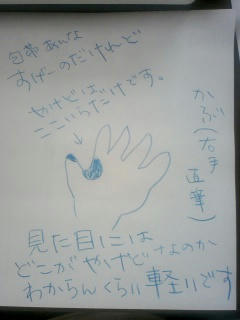 包帯 あんな
すげーのだけれど
やけどは
ここいらだけです。
かぶ(右手
直筆)
見た目には
どこがやけどなのか
わからんくらい軽いです